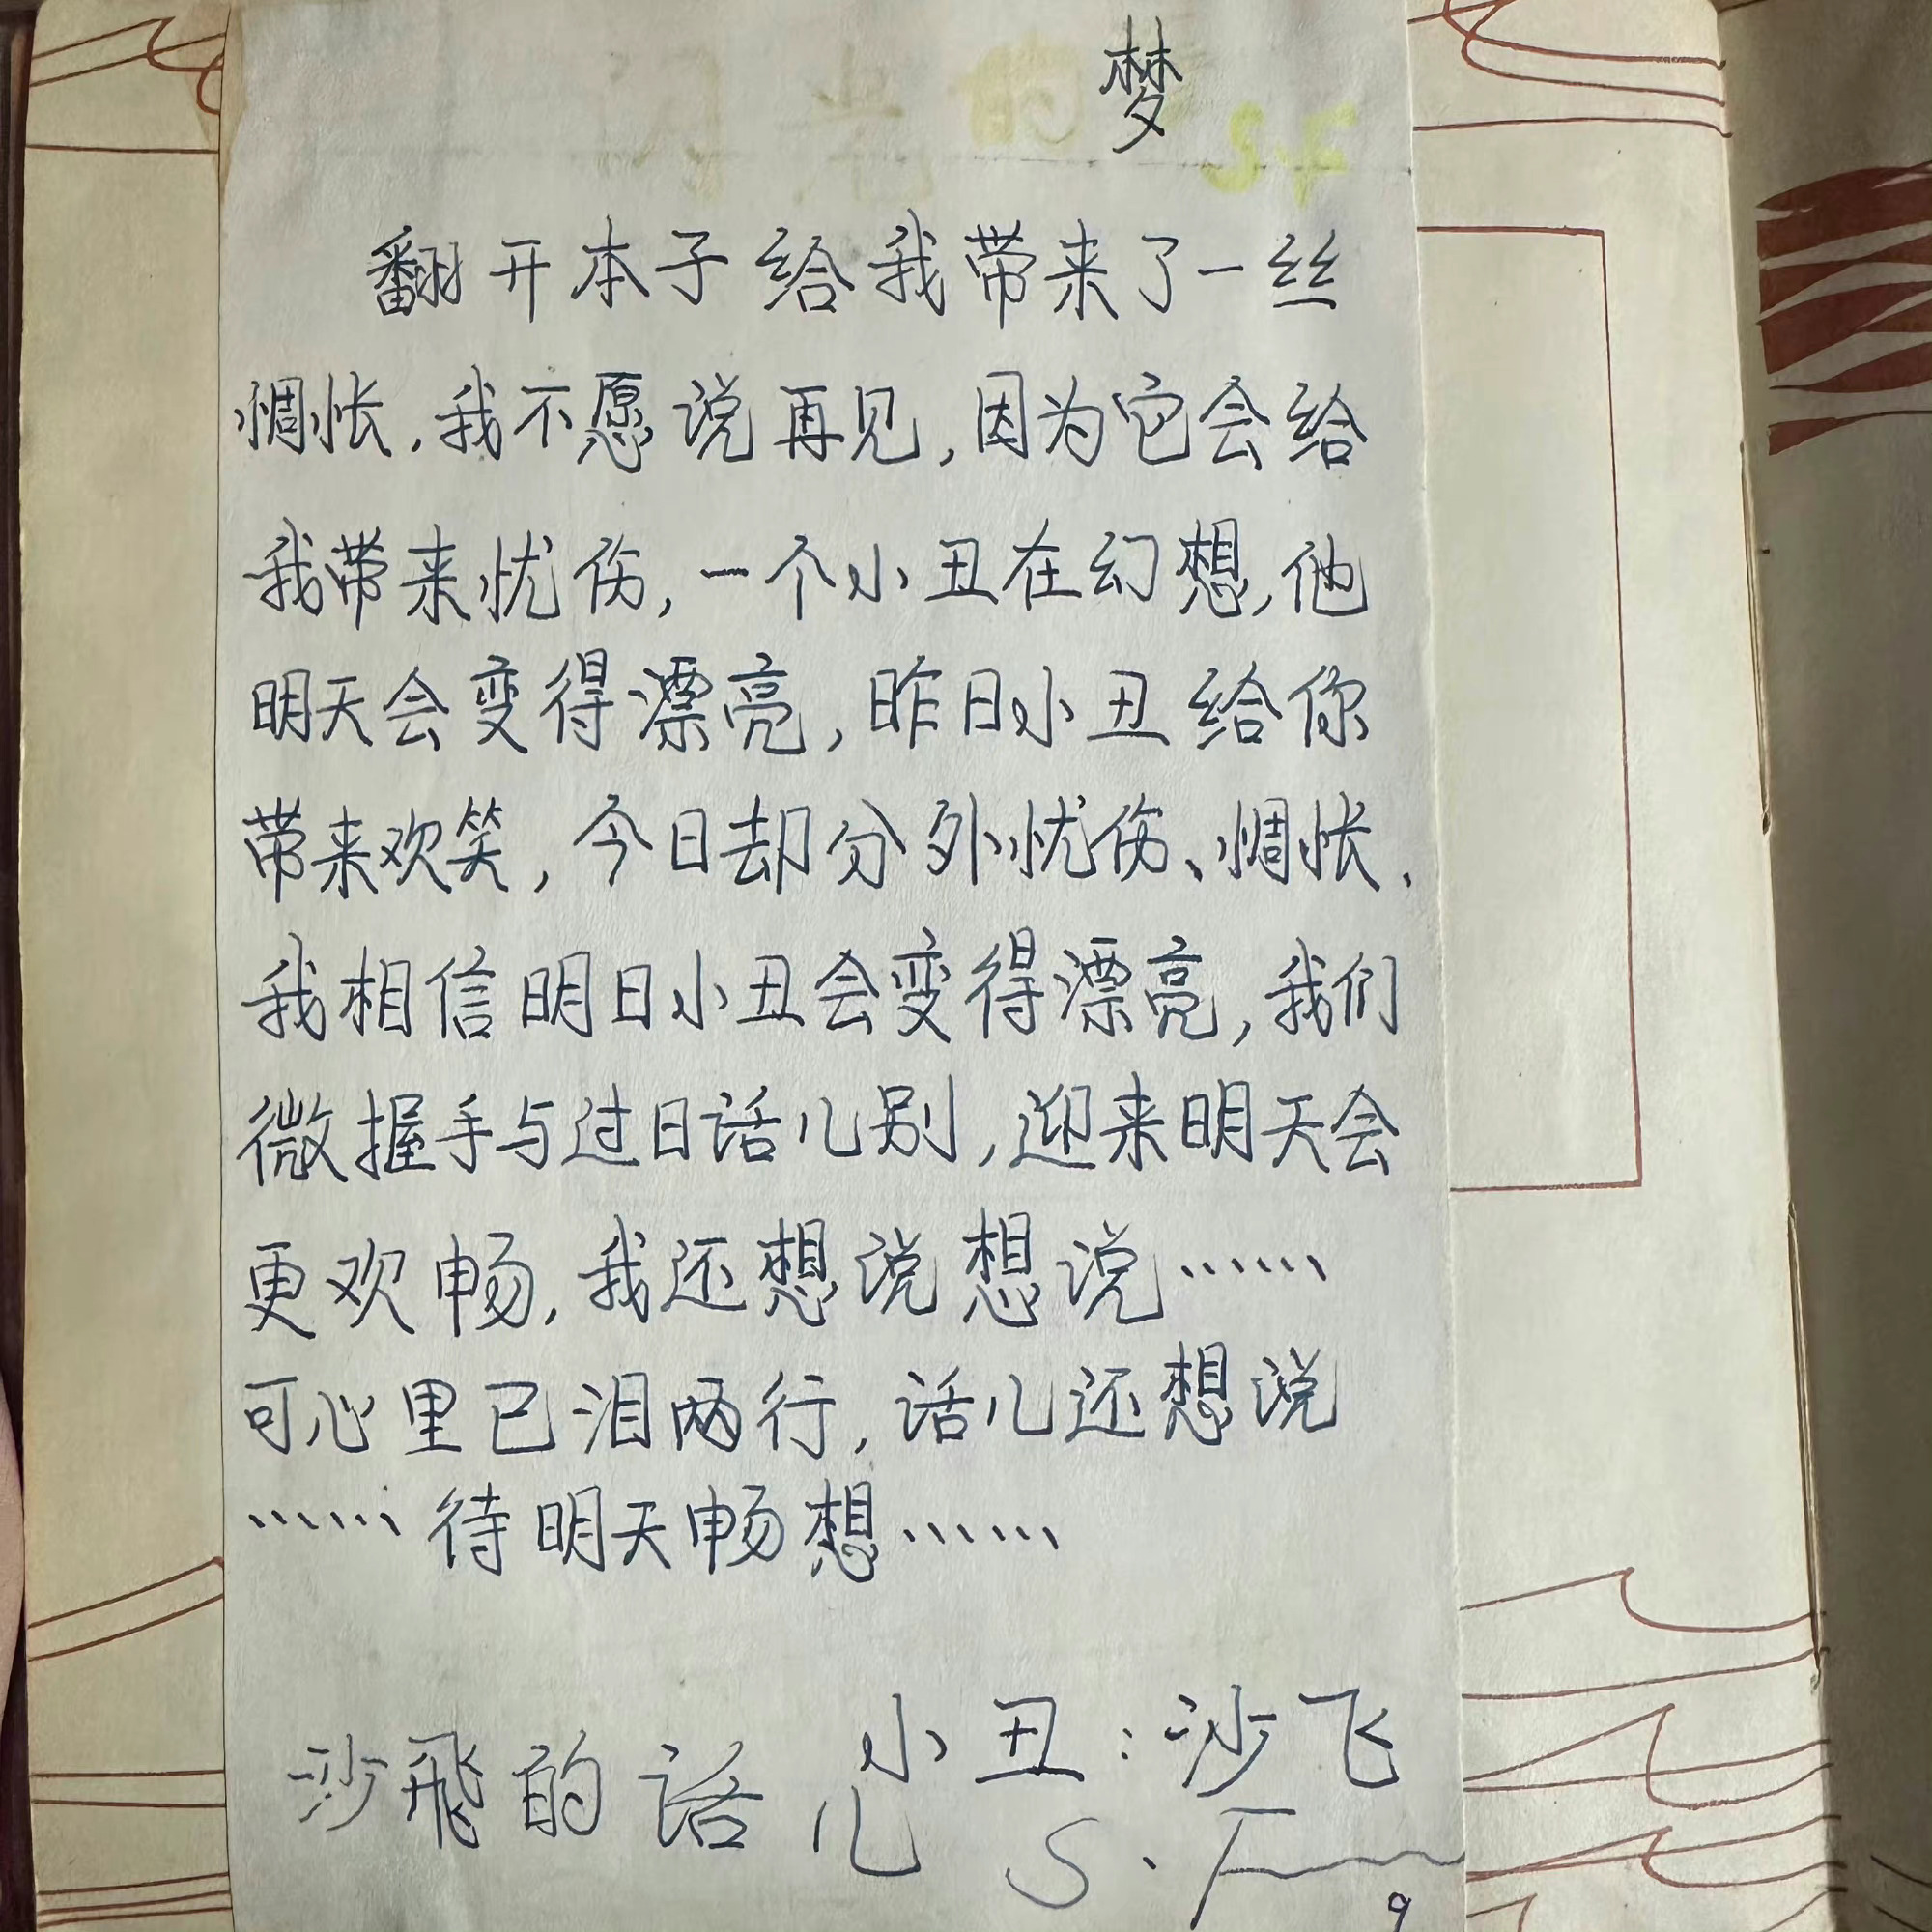 梦
翻开本子给我带来了一丝
惆怅,我不愿说再见,因为它会给
我带来忧伤,一个小丑在幻想,他
明天会变得漂亮,昨日小丑给你
带来欢笑,今日却分外忧伤、惆怅.
我相信明日小丑会变得漂亮,我们
微握手与过日话儿别,迎来明天会
更欢畅,我还想说想说……
可心里已泪两行,话儿还想说
……待明天畅想……
小丑:沙飞
沙飛的话儿
S.F
9